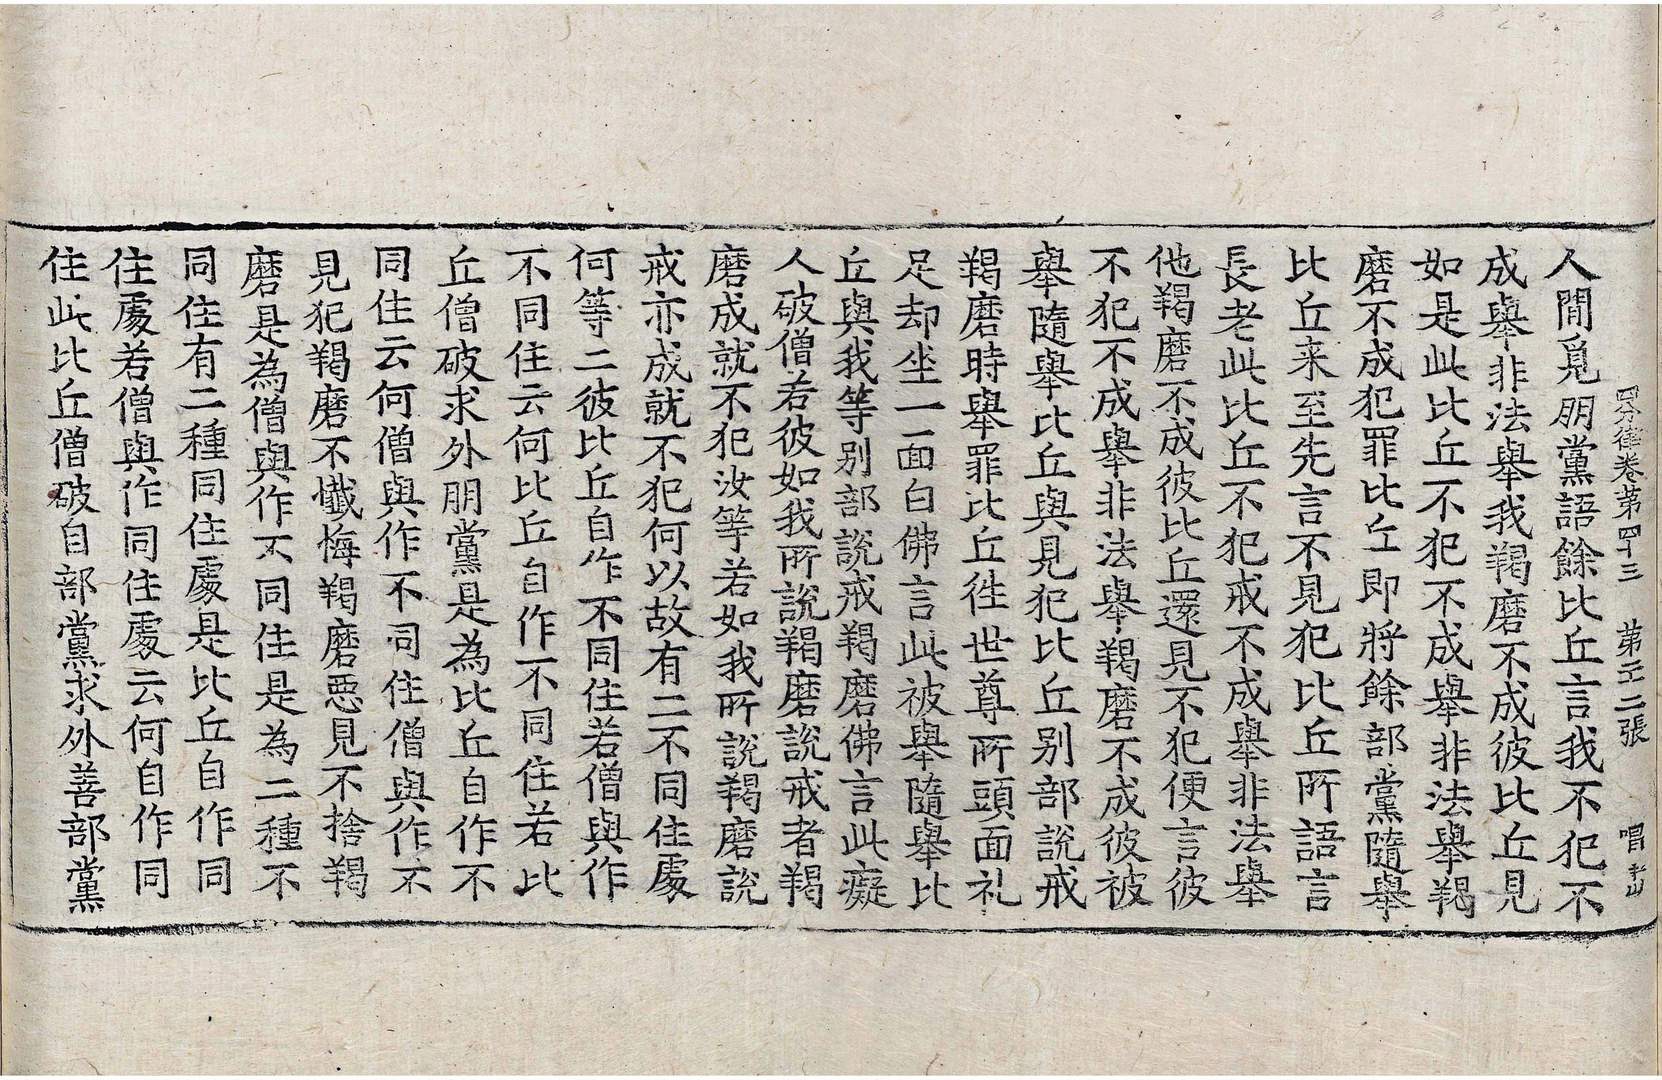 四分律卷第四十三 第二張 唱
人間覓朋黨語餘比丘言我不犯不
成舉非法舉我羯磨不成彼比丘見
如是此比丘不犯不成舉非法舉羯
磨不成犯罪比丘即將餘部黨隨舉
比丘来至先言不見犯比丘所語言
長老此比丘不犯戒不成舉非法舉
他羯磨不成彼比丘還見不犯便言彼
不犯不成舉非法舉羯磨不成彼被
舉隨舉比丘與見犯比丘别部說戒
羯磨時舉罪比丘徃世尊所頭面礼
足却坐一面白佛言此被舉隨舉比
丘與我等别部說戒羯磨佛言此癡
人破僧若彼如我所說羯磨說戒者羯
磨成就不犯汝等若如我所說羯磨說
戒亦成就不犯何以故有二不同住處
何等二彼比丘自作不同住若僧與作
不同住云何比丘自作不同住若比
丘僧破求外朋黨是為比丘自作不
同住云何僧與作不同住僧與作不
見犯羯磨不懺悔羯磨惡見不捨羯
磨是為僧與作不同住是為二種不
同住有二種同住處是比丘自作同
住處若僧與作同住處云何自作同
住此比丘僧破自部黨求外善部黨